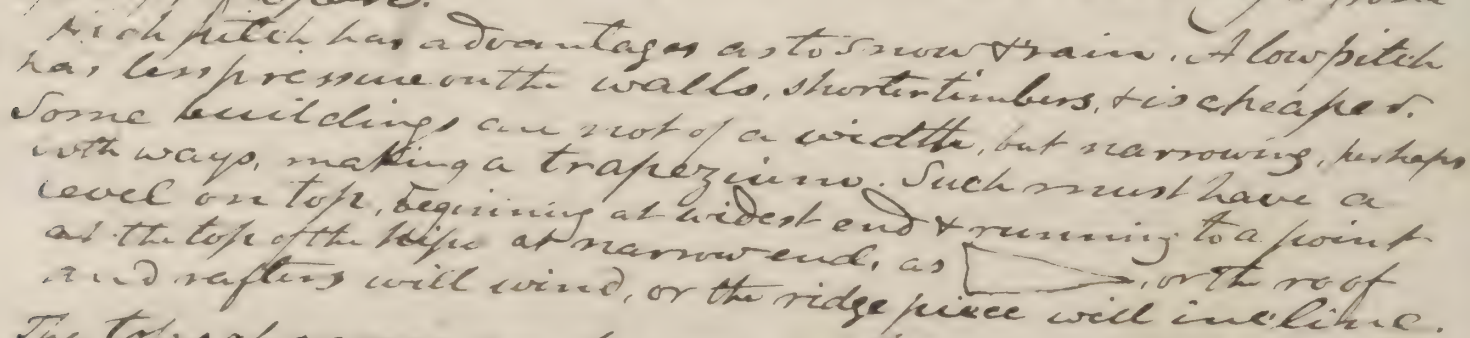 High pitch has advantages as to snow & rain. A low pitch
has less pressure on the walls, shorter timbers, & is cheaper.
Some buildings are not of a width, but narrowing, perhaps
both ways, making a trapezium. Such must have a
level on top, beginning at widest end & running to a point
at the top of the hips at narrow end, as , or the roof
and rafters will wind, or the ridge piece will incline.